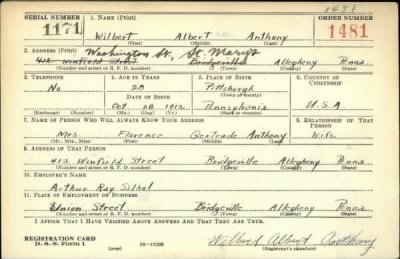 1481
SERIAL NUMBER 1. NAME (Print) ORDER NUMBER
1171 Wilbert Albert Anthony 1481
(First) (Middle) (Last)
2. ADDRESS (Print) Washington St. St. Marys
412 Winfield Street Bridgeville Allegheny Penna
(Number and street or R. F. D. number) (Town) (County) (State)
3. TELEPHONE 4. AGE IN YEARS 5. PLACE OF BIRTH 6. COUNTRY OF CITIZENSHIP
No 28 Pittsburgh
DATE OF BIRTH (Town or county)
Oct 28 1912 Pennsylvania U.S.A
(Exchange) (Number) (Mo.) (Day) (Yr.) (State or country)
7. NAME OF PERSON WHO WILL ALWAYS KNOW YOUR ADDRESS 8. RELATIONSHIP OF THAT PERSON
Mrs. Florence Gertrude Anthony Wife
(Mr., Mrs., Miss) (First) (Middle) (Last)
9. ADDRESS OF THAT PERSON
412 Winfield Street Bridgeville Allegheny Penna
(Number and street or R. F. D. number) (Town) (County) (State)
10. EMPLOYER'S NAME
Arthur Ray Silhol
11. PLACE OF EMPLOYMENT OR BUSINESS
Union Street Bridgeville Allegheny Penna
(Number and street or R. F. D. number) (Town) (County) (State)
I AFFIRM THAT I HAVE VERIFIED ABOVE ANSWERS AND THAT THEY ARE TRUE.
REGISTRATION CARD
D. S. S. Form 1 (over) 16—17105 Wilbert Albert Anthony
(Registrant's signature)